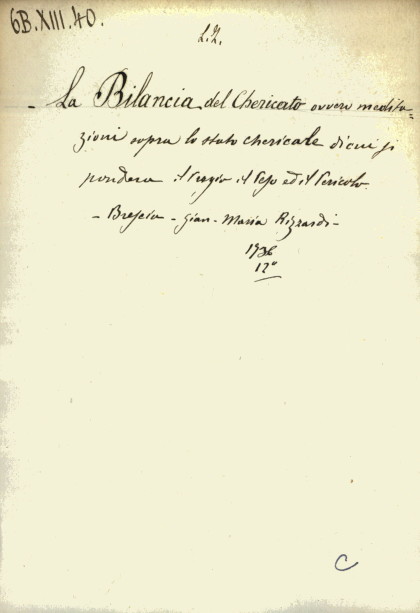 6B.XIII.40.
L.Z.
- La Bilancia del Chericato ovvero medita=
zioni sopra lo stato chericale di cui si
pondera il Pregio il Peso ed il Pericolo.
- Brescia - Gian-Maria Rizzardi -
1736
12°
C